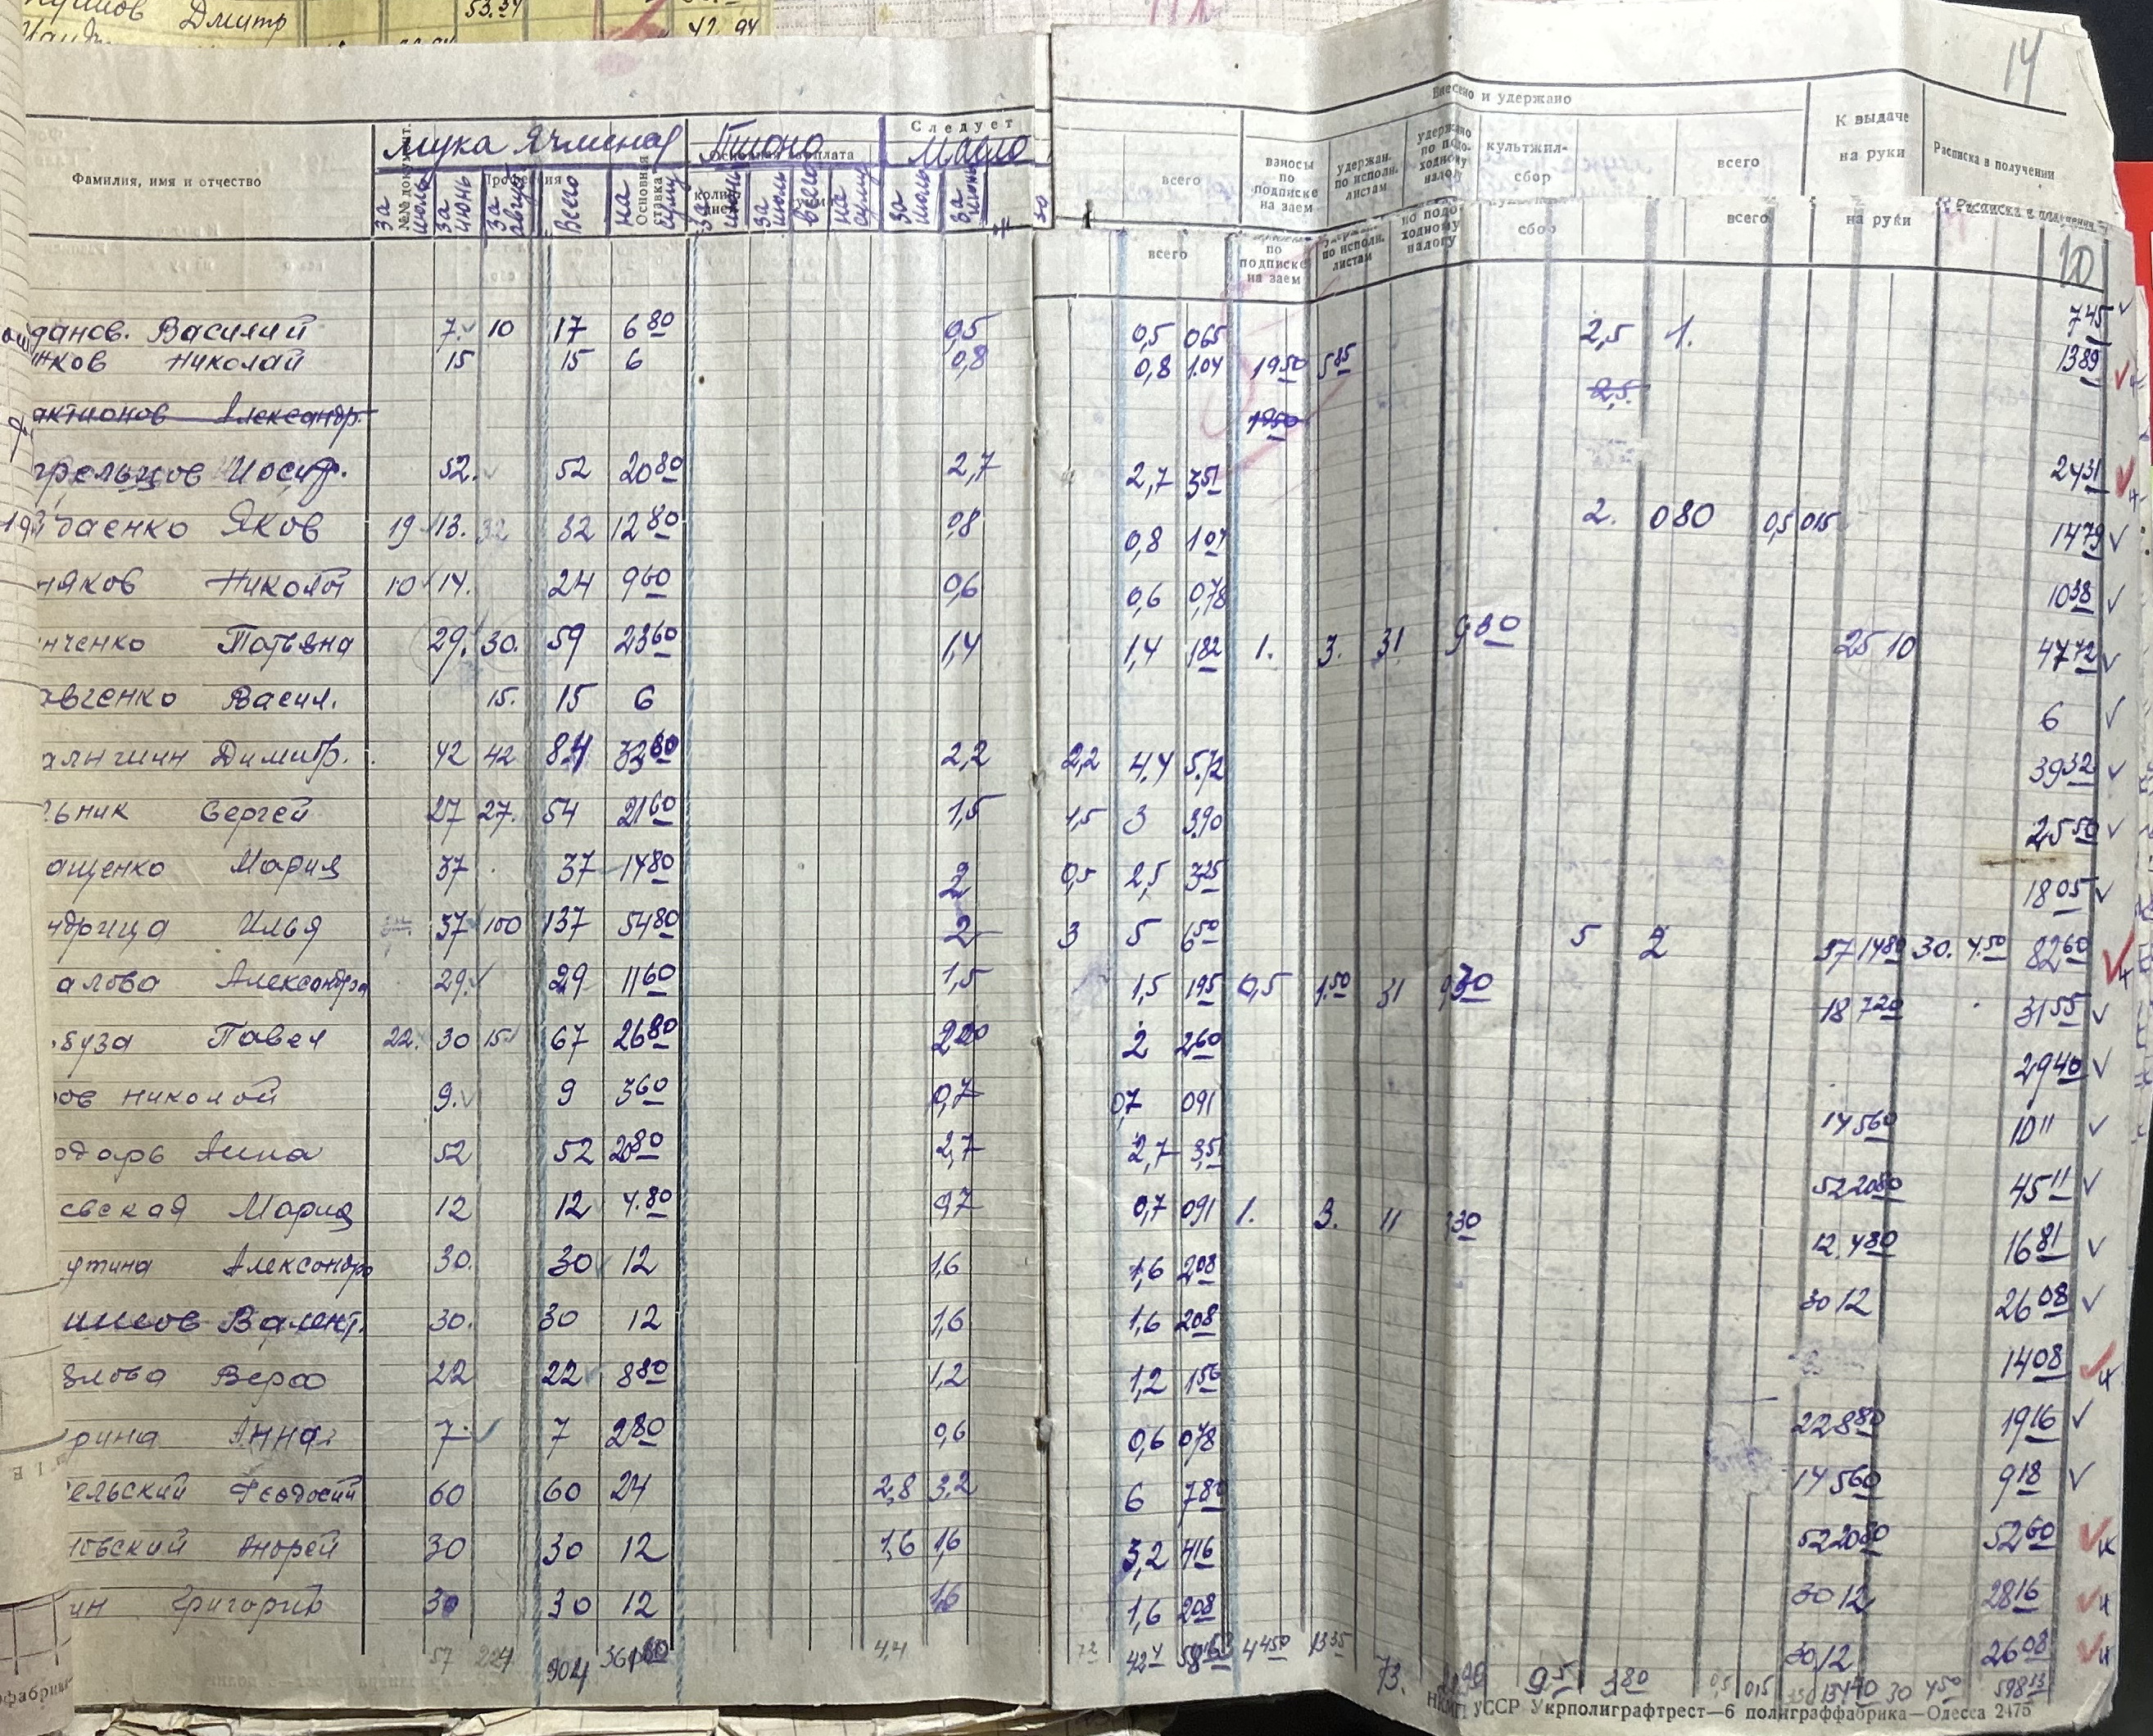 Дмитр
53.34
42.94
14
Внесено и удержано
мука Ячменая Пшоно Следует Масло
Основная зарплата
Фамилия, имя и отчество
№№ документ. Профессия Основная ставка
за июль за июнь за август всего на сумму за июнь за июль всего на сумму за июль за июнь
всего взносы по подписке на заем удержан. по исполн. листам удержано по подо-ходному налогу культжил-сбор всего К выдаче на руки Расписка в получении
всего по подписке на заем по исполн. листам по подо-ходному налогу сбор всего на руки Расписка в получении
10
данов. Василий 7. 10 17 6 80 0,5 0,5 065 2,5 1. 745
нков Николай 15 15 6 0,8 0,8 1.04 1950 585 1389
актионов Александр. 1950 2,5
Иосиф. 52. 52 2080 2,7 2,7 351 2431
баенко Яков 19 13. 32 32 1280 0,8 0,8 107 2. 080 0,5 015 1479
няков Николай 10 14. 24 960 0,6 0,6 0,78 1038
нченко Татьяна 29. 30. 59 2360 1,4 1,4 182 1. 3. 31 930 25 10 4772
авченко Васил. 15. 15 6 6
Димитр. 42 42 84 3360 2,2 2,2 4,4 5.72 3932
ьник Сергей 27 27. 54 2160 1,5 1,5 3 3.90 2550
ащенко Мария 37 37 1480 2 0,5 2,5 325 1805
ндрица Илья 37 100 137 5480 2 3 5 650 5 2 37 1480 30. 4.50 8260
алова Александра 29. 29 1160 1,5 1,5 195 0,5 1.50 31 930 18 720 3155
буза Павел 22. 30 15 67 2680 2 260 2940
ов Николай 9. 9 360 0,7 0,7 091 14 560 1011
одарь Анна 52 52 2080 2,7 2,7 3,51 52 2080 4511
евская Мария 12 12 4.80 0,7 0,7 091 1. 3. 11 330 12. 480 1681
утина Александра 30. 30 12 1,6 1,6 208 30 12 2608
Валент. 30. 30 12 1,6 1,6 208 1408
злова Вера 22 22 880 1,2 1,2 156 22 880 1916
рина Анна 7. 7 280 0,6 0,6 078 14 560 918
ельский Феодосий 60 60 24 2,8 3,2 6 780 52 2080 5260
овский Андрей 30 30 12 1,6 1,6 3,2 416 30 12 2816
ин Григорий 30 30 12 1,6 1,6 208 30 12 2608
57 224 904 4,4 42 4 4 4450 1335 73. 9.5 380 0,5 015 30 450 59853
НКМП УССР Укрполиграфтрест—6 полиграффабрика—Одесса 2475